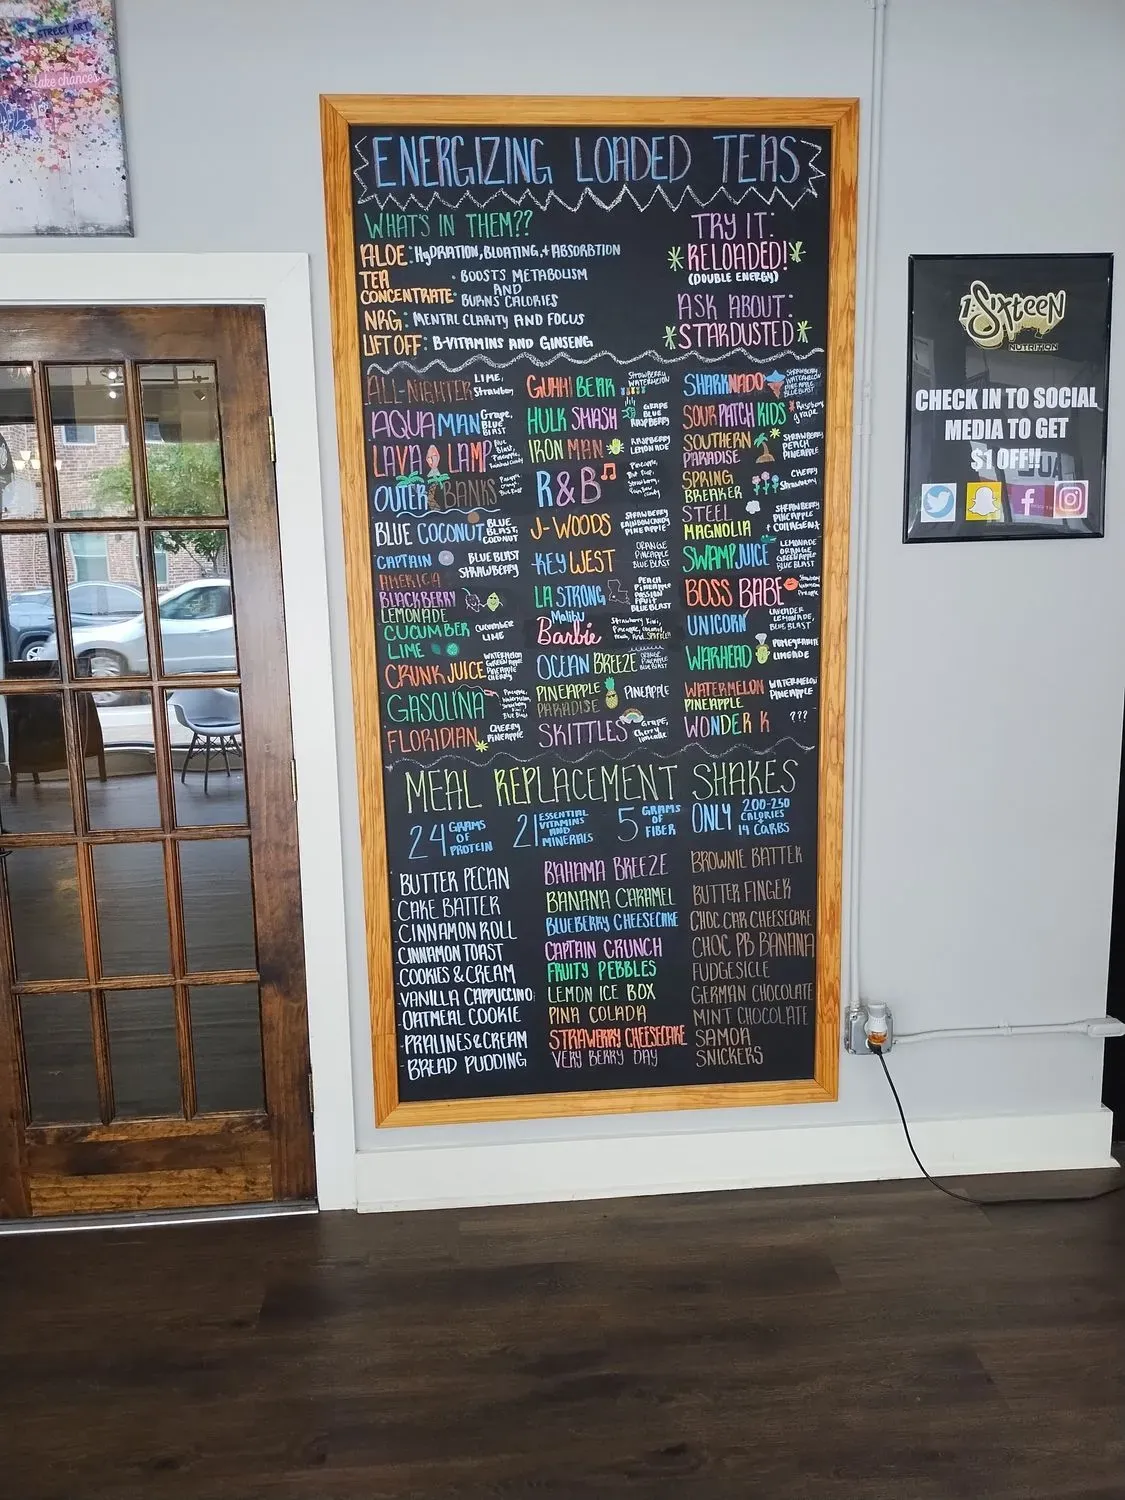 STREET ART
take chances
ENERGIZING LOADED TEAS
WHAT'S IN THEM??
ALOE: HYDRATION, BLOATING, + ABSORBTION
TEA CONCENTRATE: BOOSTS METABOLISM
AND
BURNS CALORIES
NRG: MENTAL CLARITY AND FOCUS
LIFT OFF: B-VITAMINS AND GINSENG
TRY IT:
RELOADED!
(DOUBLE ENERGY)
ASK ABOUT:
STARDUSTED
ALL-NIGHTER LIME,
AQUAMAN Grape, BLUE BLAST
LAVA LAMP
OUTER BANKS
BLUE COCONUT BLUE BLAST, COCONUT
CAPTAIN AMERICA BLUE BLAST STRAWBERRY
BLACKBERRY LEMONADE
CUCUMBER LIME CUCUMBER LIME
CRUNK JUICE WATERMELON GREEN APPLE PINEAPPLE CHERRY
GASOLINA
FLORIDIAN CHERRY PINEAPPLE
GUMMI BEAR STRAWBERRY WATERMELON
HULK SMASH GRAPE BLUE RASPBERRY
IRON MAN RASPBERRY LEMONADE
R&B
J-WOODS STRAWBERRY RAINBOW CANDY PINEAPPLE
KEY WEST ORANGE PINEAPPLE BLUE BLAST
LA STRONG PEACH PINEAPPLE PASSION FRUIT BLUE BLAST
Malibu Barbie
OCEAN BREEZE ORANGE PINEAPPLE BLUE BLAST
PINEAPPLE PARADISE PINEAPPLE
SKITTLES Grape, Cherry Limeade
SHARKNADO STRAWBERRY WATERMELON PINEAPPLE BLUE BLAST
SOUR PATCH KIDS Raspberry grape
SOUTHERN PARADISE STRAWBERRY PEACH PINEAPPLE
SPRING BREAKER CHERRY Strawberry
STEEL MAGNOLIA STRAWBERRY PINEAPPLE + COLLAGEN
SWAMP JUICE LEMONADE ORANGE GREEN APPLE BLUE BLAST
BOSS BABE
UNICORN LAVENDER LEMONADE, BLUE BLAST
WARHEAD POMEGRANATE LIMEADE
WATERMELON PINEAPPLE WATERMELON PINEAPPLE
WONDER K ???
MEAL REPLACEMENT SHAKES
24 GRAMS OF PROTEIN
21 ESSENTIAL VITAMINS AND MINERALS
5 GRAMS OF FIBER
ONLY 200-250 CALORIES + 14 CARBS
BUTTER PECAN
CAKE BATTER
CINNAMON ROLL
CINNAMON TOAST
COOKIES & CREAM
VANILLA CAPPUCCINO
OATMEAL COOKIE
PRALINES & CREAM
BREAD PUDDING
BAHAMA BREEZE
BANANA CARAMEL
BLUEBERRY CHEESECAKE
CAPTAIN CRUNCH
FRUITY PEBBLES
LEMON ICE BOX
PINA COLADA
STRAWBERRY CHEESECAKE
VERY BERRY DAY
BROWNIE BATTER
BUTTER FINGER
CHOC CAR CHEESECAKE
CHOC PB BANANA
FUDGESICLE
GERMAN CHOCOLATE
MINT CHOCOLATE
SAMOA
SNICKERS
1 Sixteen
NUTRITION
CHECK IN TO SOCIAL
MEDIA TO GET
$1 OFF!!